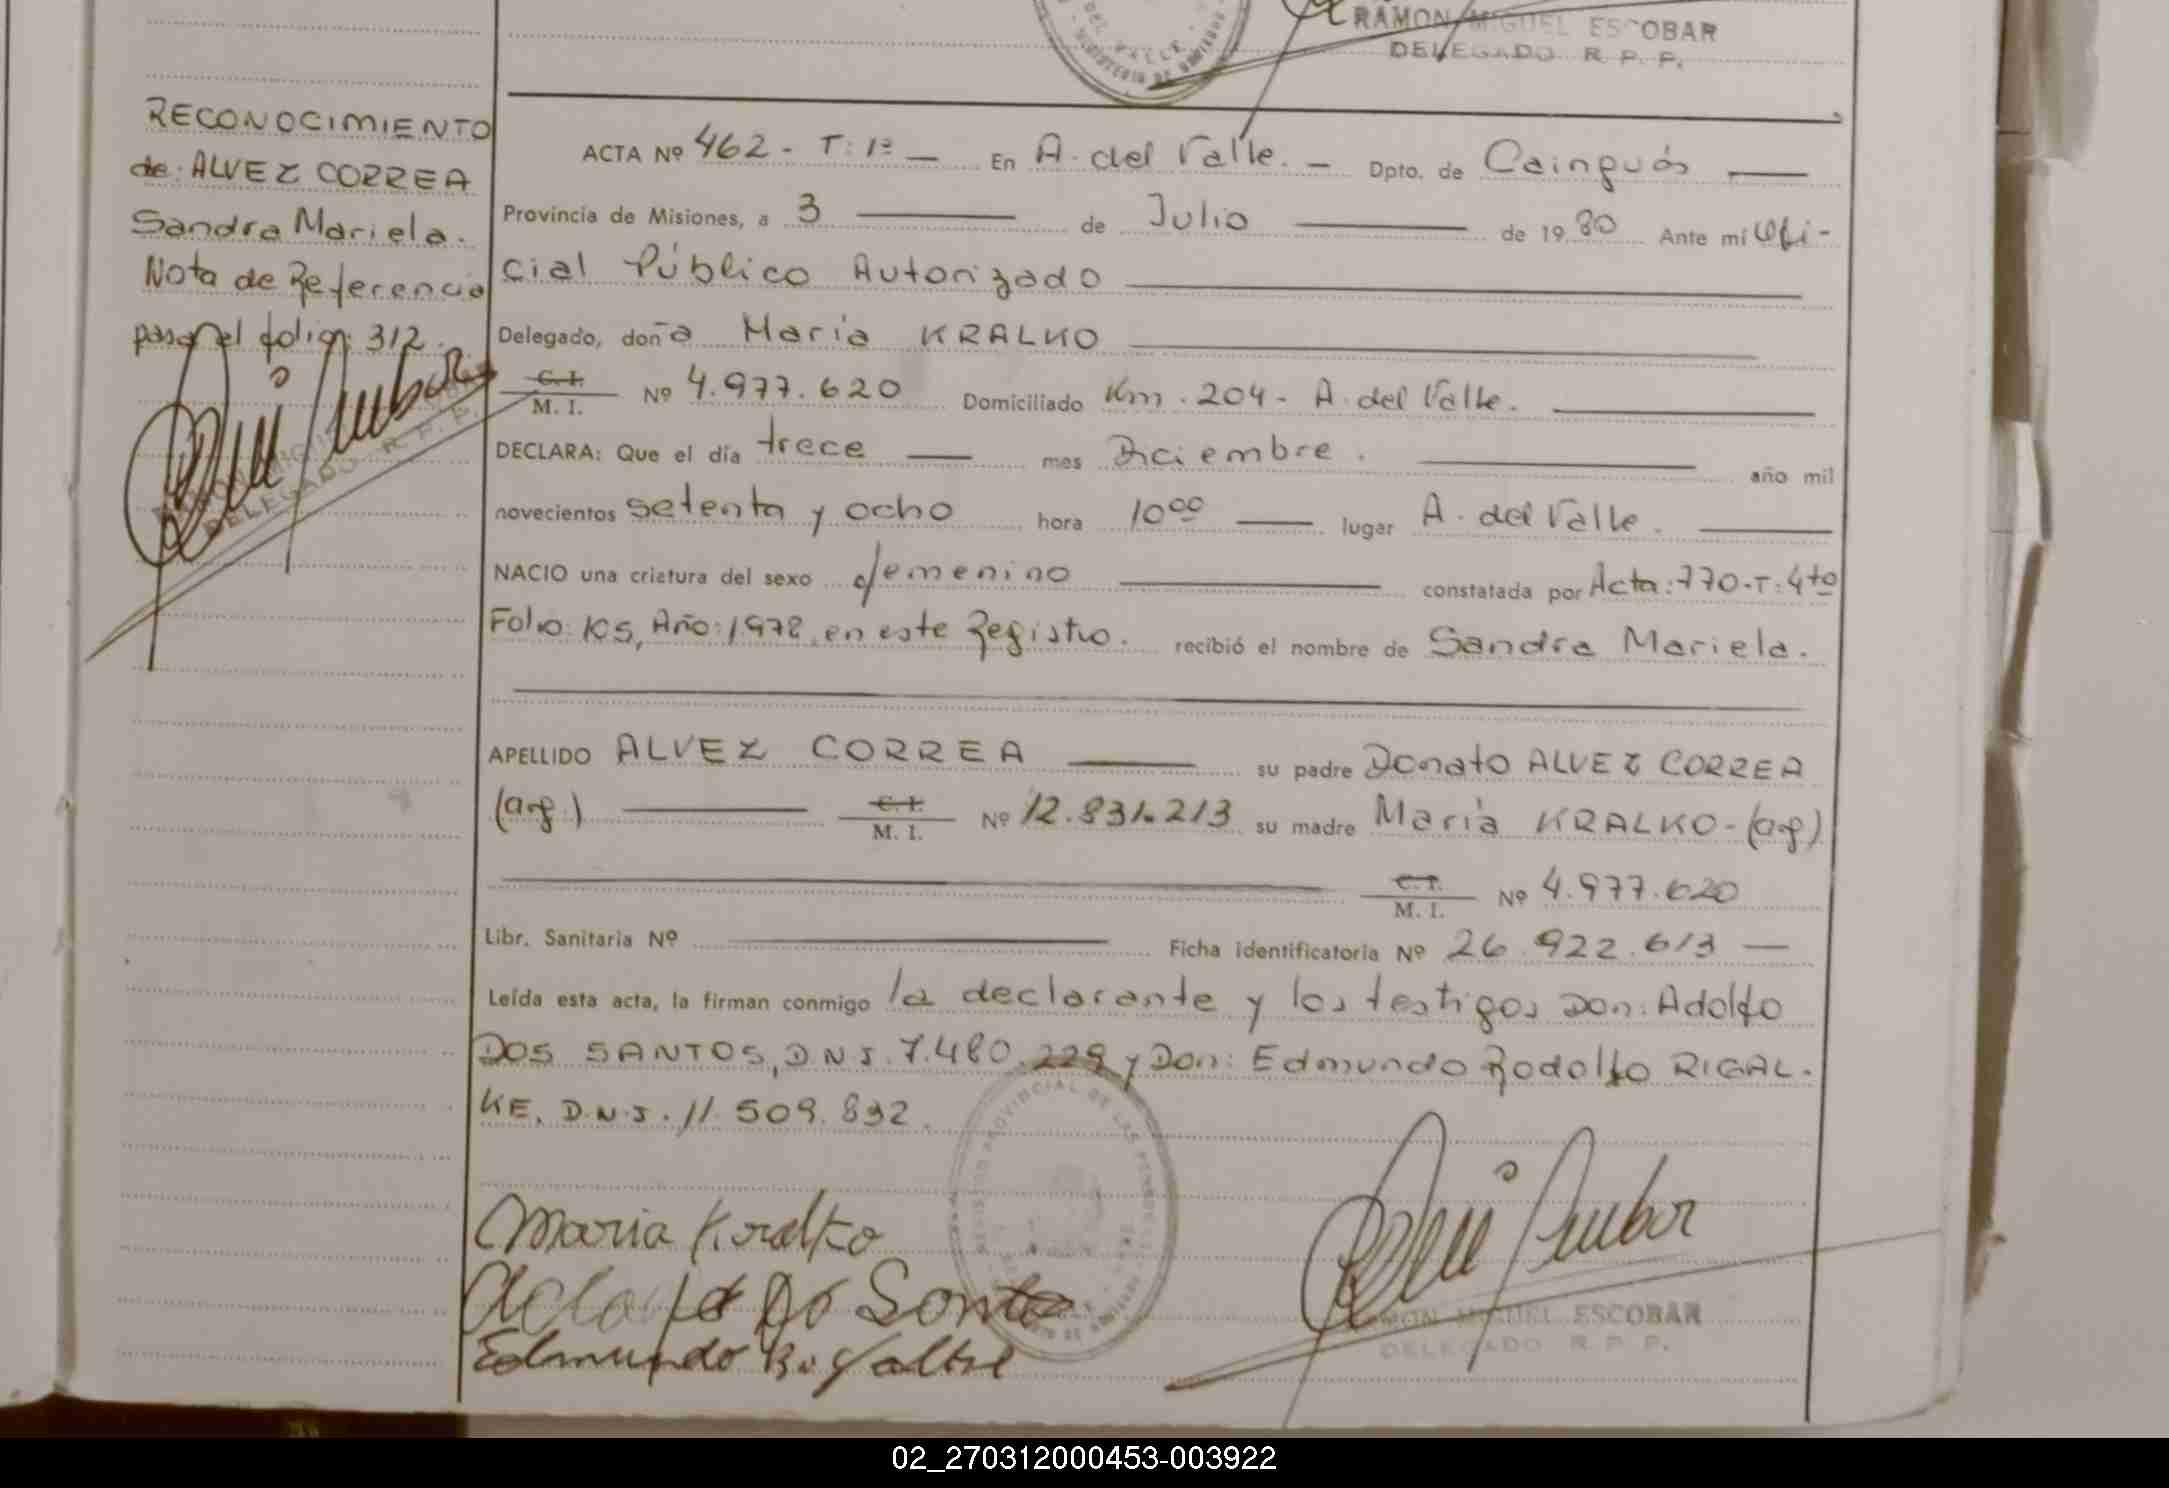 RAMON MIGUEL ESCOBAR
DELEGADO R. P. P.
RECONOCIMIENTO
de: ALVEZ CORREA
Sandra Mariela.
Nota de Referencia
pasa el folio: 312.
RAMON MIGUEL
DELEGADO R. P. P.
ACTA Nº 462 - T: 1º — En A. del Valle. — Dpto. de Cainguás —
Provincia de Misiones, a 3 — de Julio — de 19 80 Ante mí Ofi-
cial Público Autorizado
Delegado, doña María KRALKO
C. I.
M. I. Nº 4.977.620 Domiciliado Km. 204 - A. del Valle.
DECLARA: Que el día trece — mes Diciembre. — año mil
novecientos setenta y ocho hora 10⁰⁰ — lugar A. del Valle.
NACIO una criatura del sexo femenino — constatada por Acta: 770-T: 4to
Folio: 105, Año: 1978, en este Registro. recibió el nombre de Sandra Mariela.
APELLIDO ALVEZ CORREA — su padre Donato ALVEZ CORREA
(arg.) — C. I.
M. I. Nº 12.831.213 su madre María KRALKO - (arg)
C. I.
M. I. Nº 4.977.620
Libr. Sanitaria Nº — Ficha identificatoria Nº 26.922.613 —
Leída esta acta, la firman conmigo la declarante y los testigos Don: Adolfo
DOS SANTOS, D.N.I. 7.480.229 y Don: Edmundo Rodolfo RIGAL-
KE, D.N.I. 11.509.832.
REGISTRO PROVINCIAL DE LAS PERSONAS
Maria Kralko
Adolfo Do Santo
Edmundo R.
RAMON MIGUEL ESCOBAR
DELEGADO R. P. P.
02_270312000453-003922